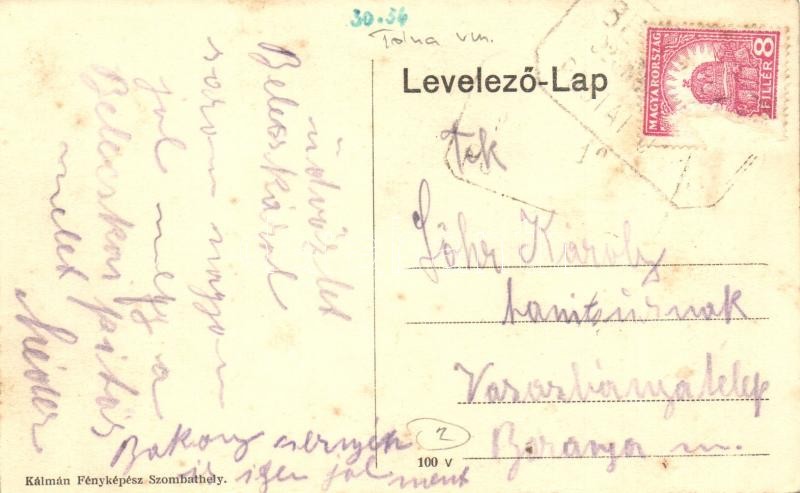 30.-56
Tolna vm.
Levelező-Lap
MAGYARORSZÁG
8
FILLÉR
Tek
Löhr Károly
tanitóurnak
Vasasbányatelep
Baranya m.
üdvözlet
Belecskáról
sorom nagyon
jól megy a
Belecskai pitás
melet
Bakony
is igen jól ment
2
100 v
Kálmán Fényképész Szombathely.